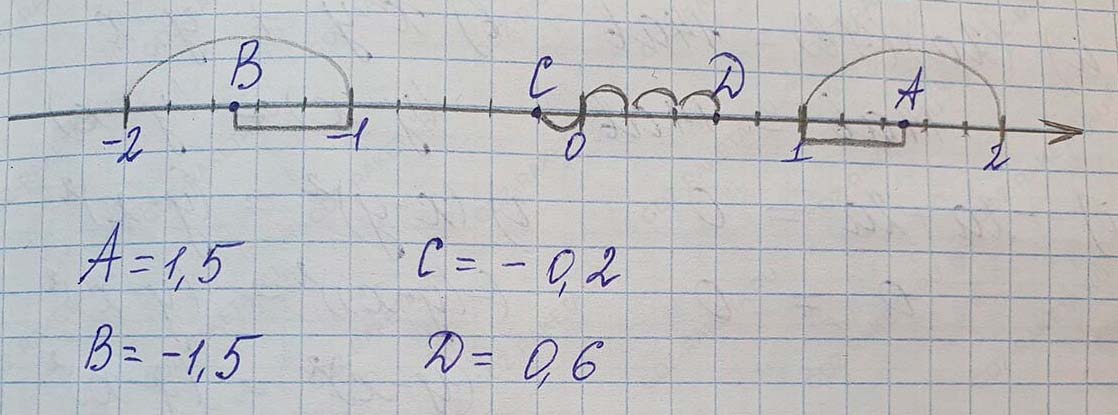 B C D A
-2 -1 0 1 2
A = 1,5 C = - 0,2
B = -1,5 D = 0,6